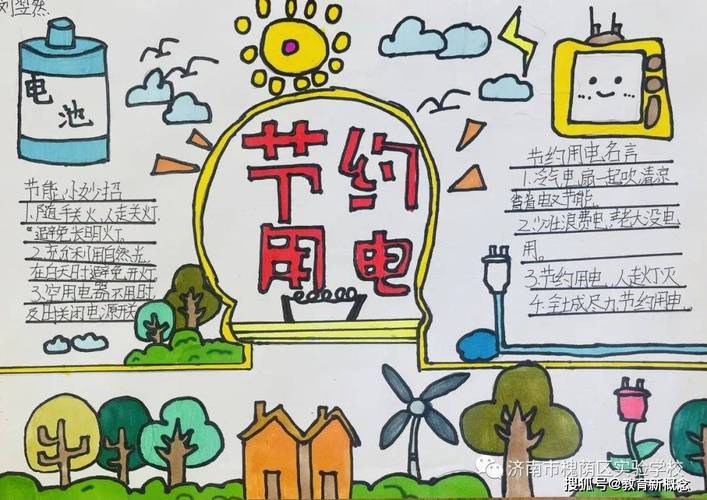 刘翌然
电池
节约
用电
节能小妙招
1.随手关火,人走关灯
避免长明灯。
2.充分利用自然光,
在白天时避免开灯
3.空用电器不用时
及时关闭电源开关
节约用电名言
1.冷气电扇一起吹清凉
省电又节能。
2.少壮浪费电,老大没电
用。
3.节约用电,人走灯灭
4.全城尽力节约用电
济南市槐荫区实验学校
搜狐号@教育新概念